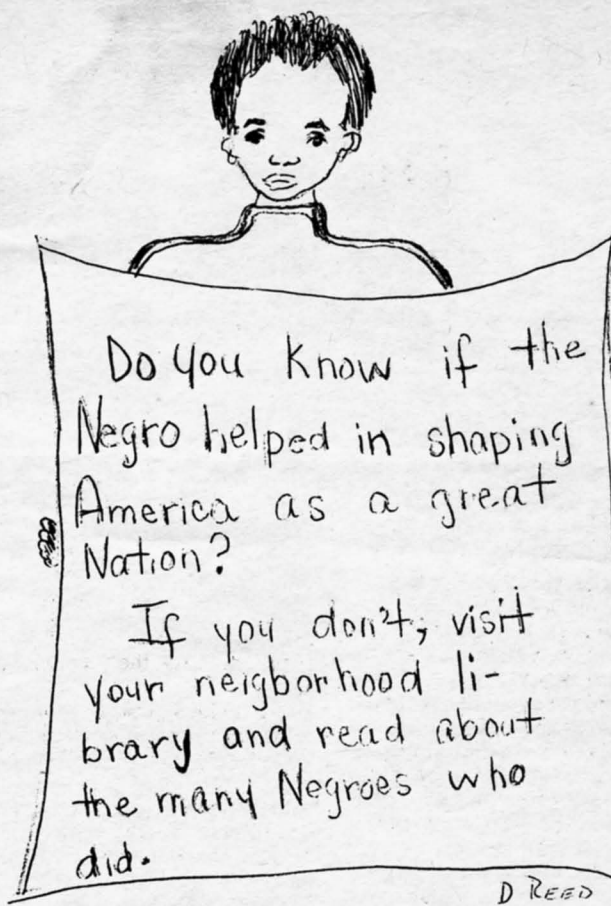 Do you know if the
Negro helped in shaping
America as a great
Nation?
If you don't, visit
your neigborhood li-
brary and read about
the many Negroes who
did.
D REED